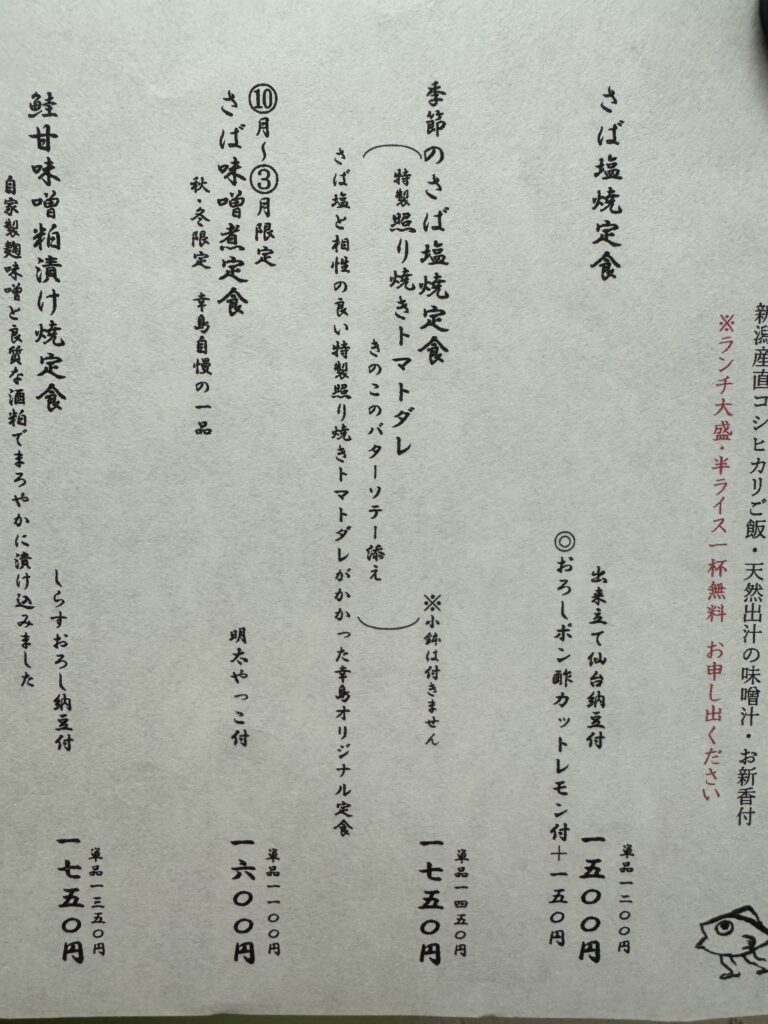 新潟産直コシヒカリご飯・天然出汁の味噌汁・お新香付
※ランチ大盛・半ライス一杯無料 お申し出ください
さば塩焼定食
出来立て仙台納豆付
単品一二〇〇円
一五〇〇円
◎おろしポン酢カットレモン付+一五〇円
季節のさば塩焼定食
※小鉢は付きません
単品一四五〇円
一七五〇円
特製照り焼きトマトダレ
きのこのバターソテー添え
さば塩と相性の良い特製照り焼きトマトダレがかかった幸島オリジナル定食
⑩月~③月限定
さば味噌煮定食
明太やっこ付
単品一一〇〇円
一六〇〇円
秋・冬限定 幸島自慢の一品
鮭甘味噌粕漬け焼定食
しらすおろし納豆付
単品一三五〇円
一七五〇円
自家製麹味噌と良質な酒粕でまろやかに漬け込みました